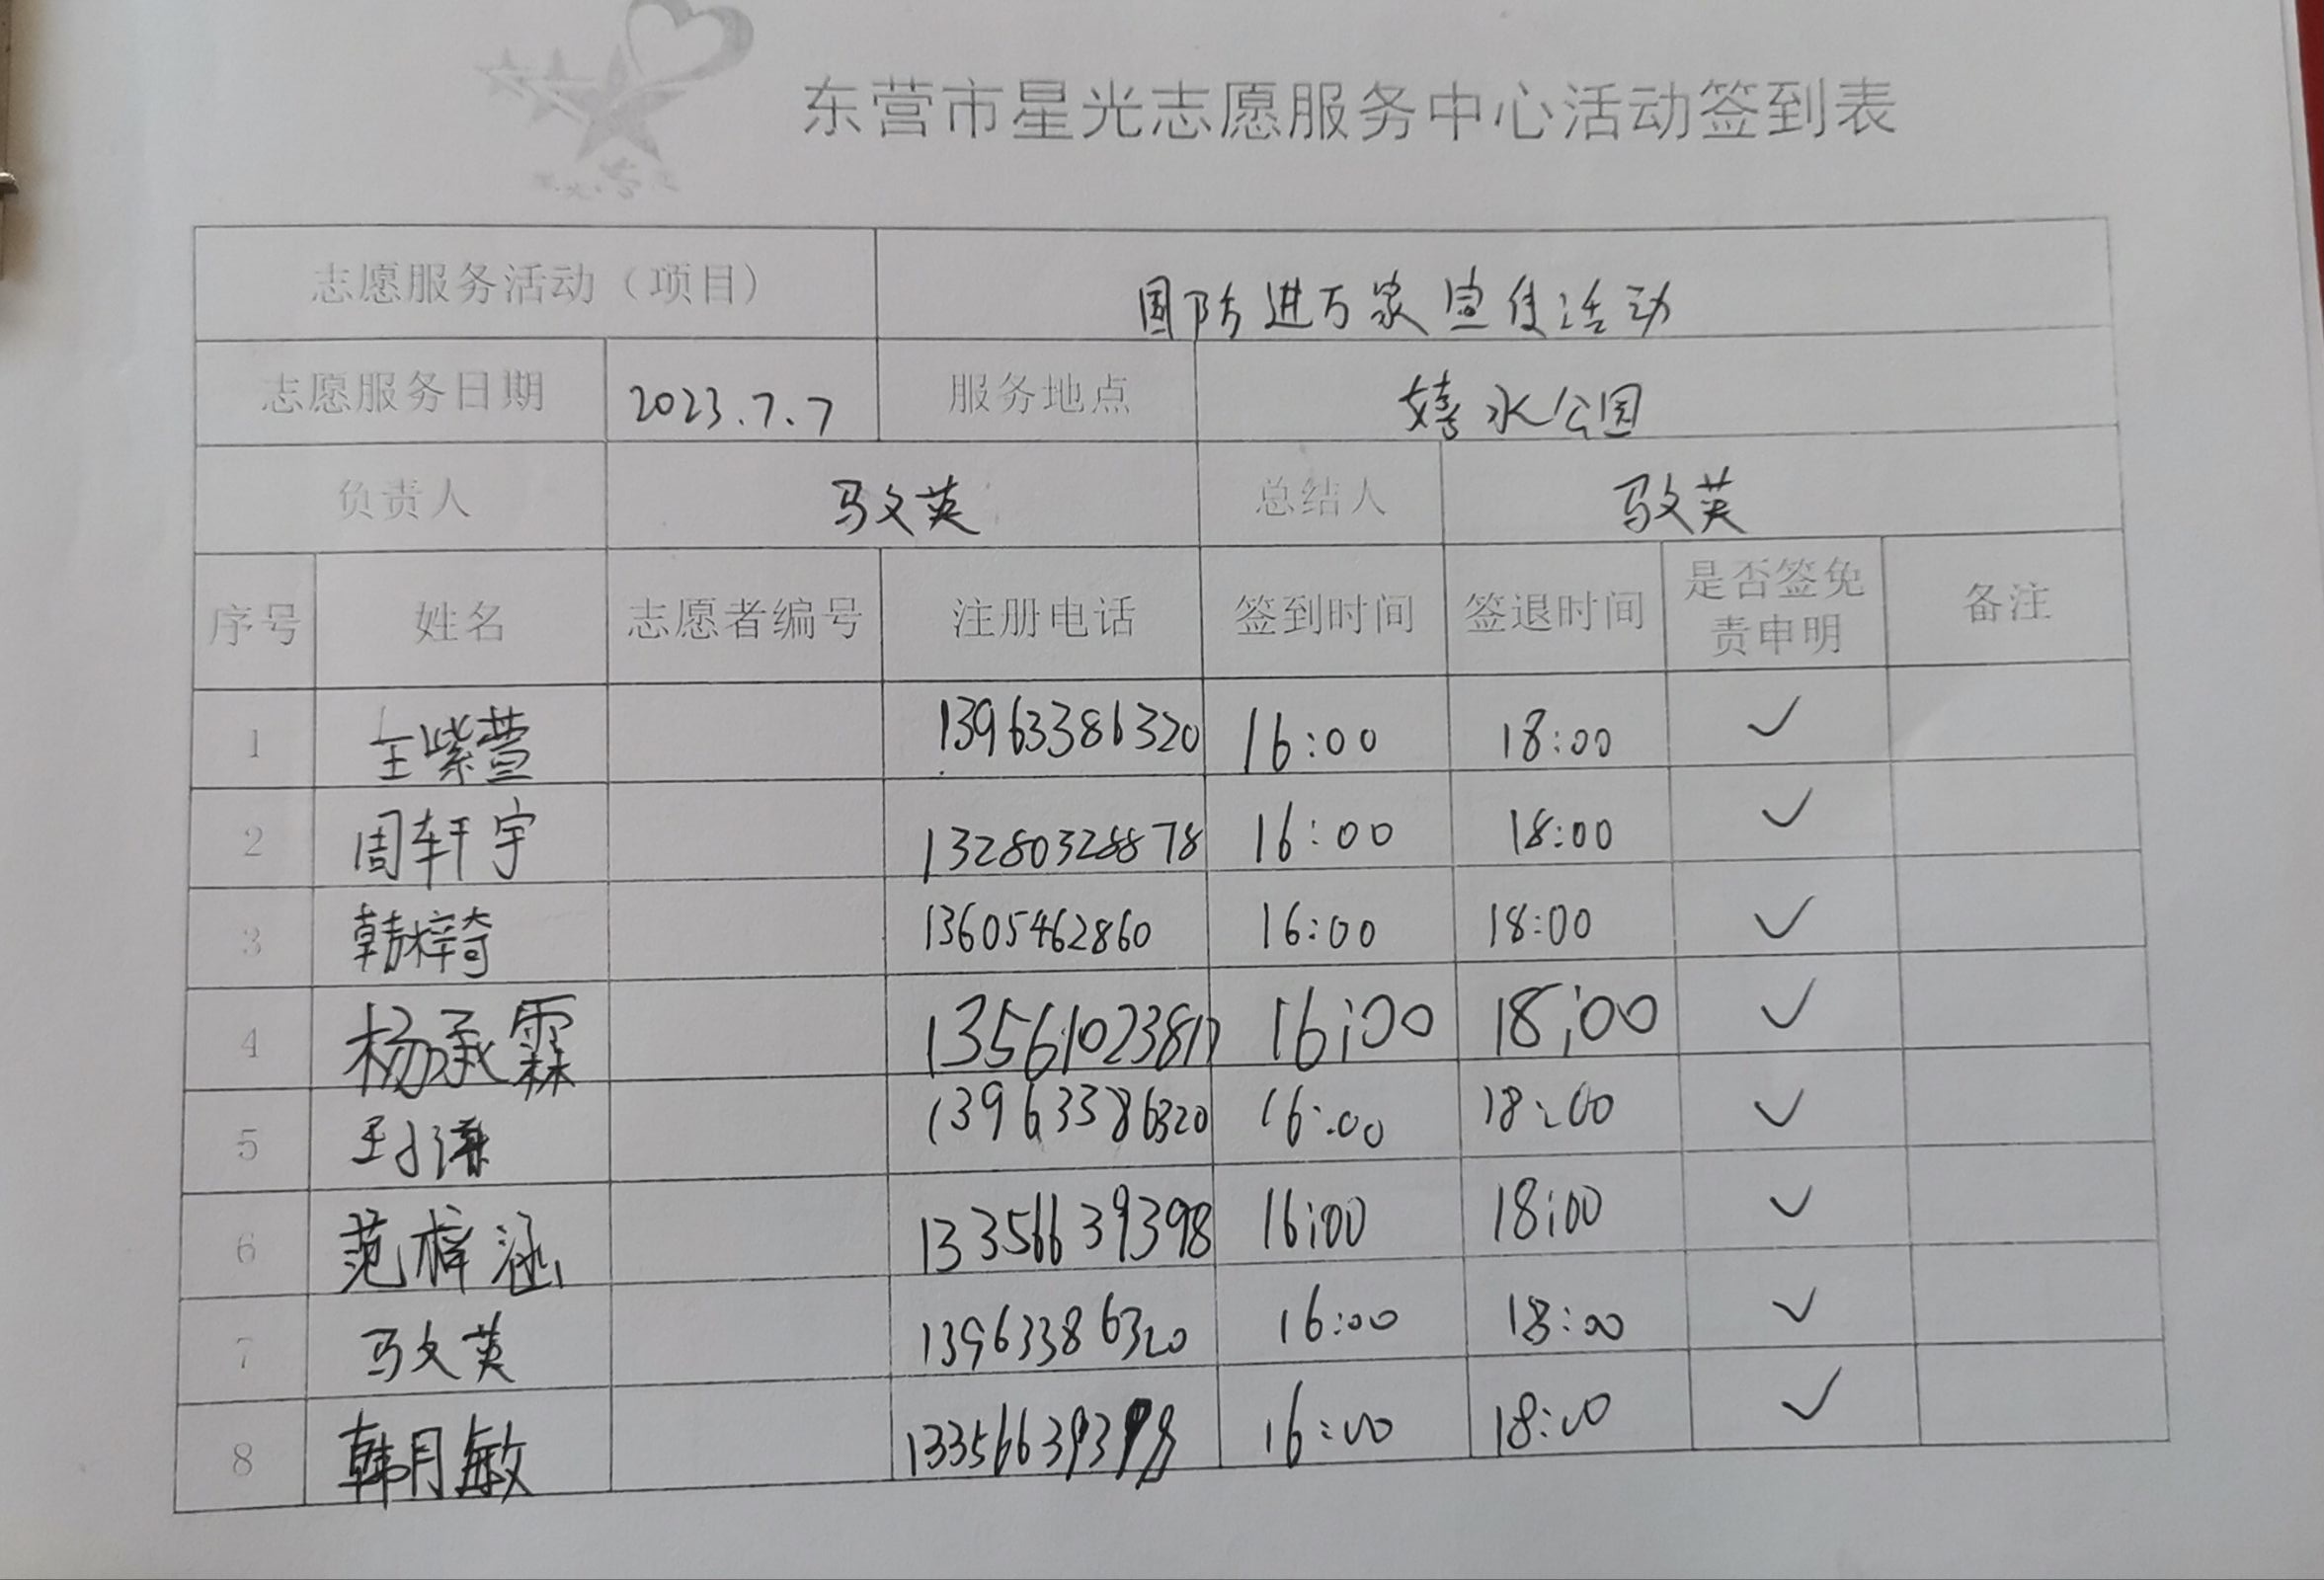 东营市星光志愿服务中心活动签到表
志愿服务活动（项目） 国防进万家宣传活动
志愿服务日期 2023.7.7 服务地点 嬉水公园
负责人 马文英 总结人 马文英
序号 姓名 志愿者编号 注册电话 签到时间 签退时间 是否签免责申明 备注
1 王紫萱 13963386320 16:00 18:00 ✓
2 周轩宇 13280328878 16:00 18:00 ✓
3 韩梓琦 13605462860 16:00 18:00 ✓
4 杨承霖 16:00 18:00 ✓
5 13963386320 16:00 18:00 ✓
6 范梓涵 13356639398 16:00 18:00 ✓
7 马文英 13963386320 16:00 18:00 ✓
8 韩月敏 16:00 18:00 ✓